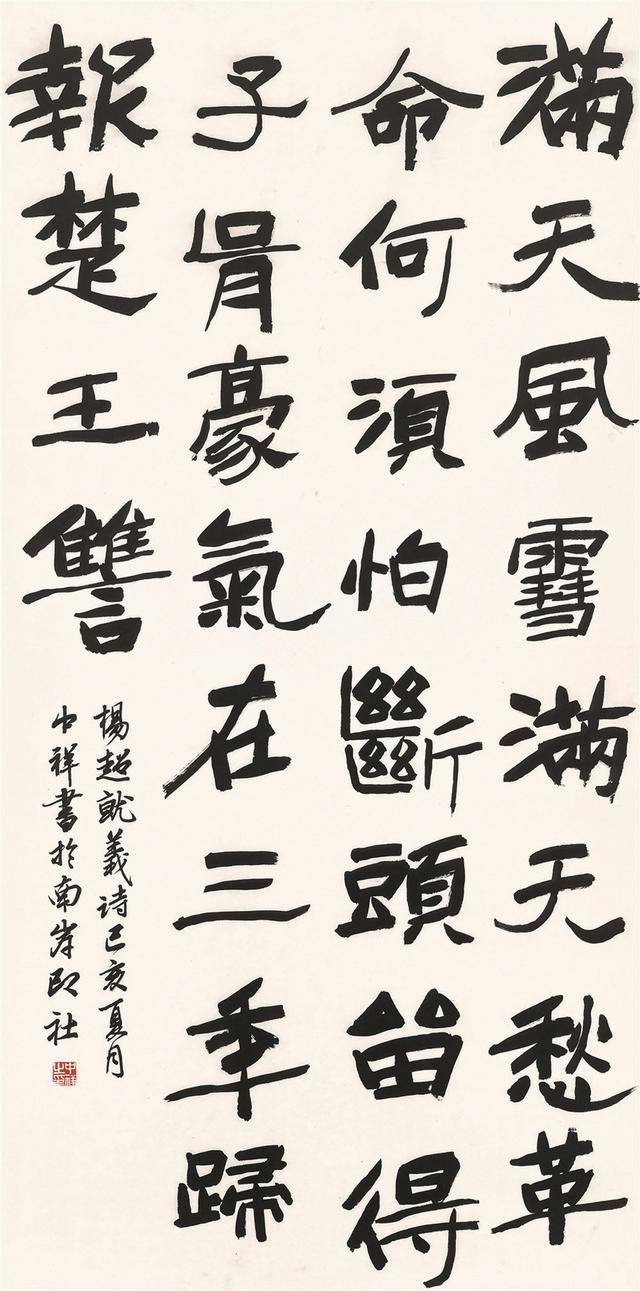 滿天風雪滿天愁革
命何須怕斷頭留得
子胥豪氣在三年歸
報楚王讐
楊超就義詩己亥夏月
中祥書於南岸印社